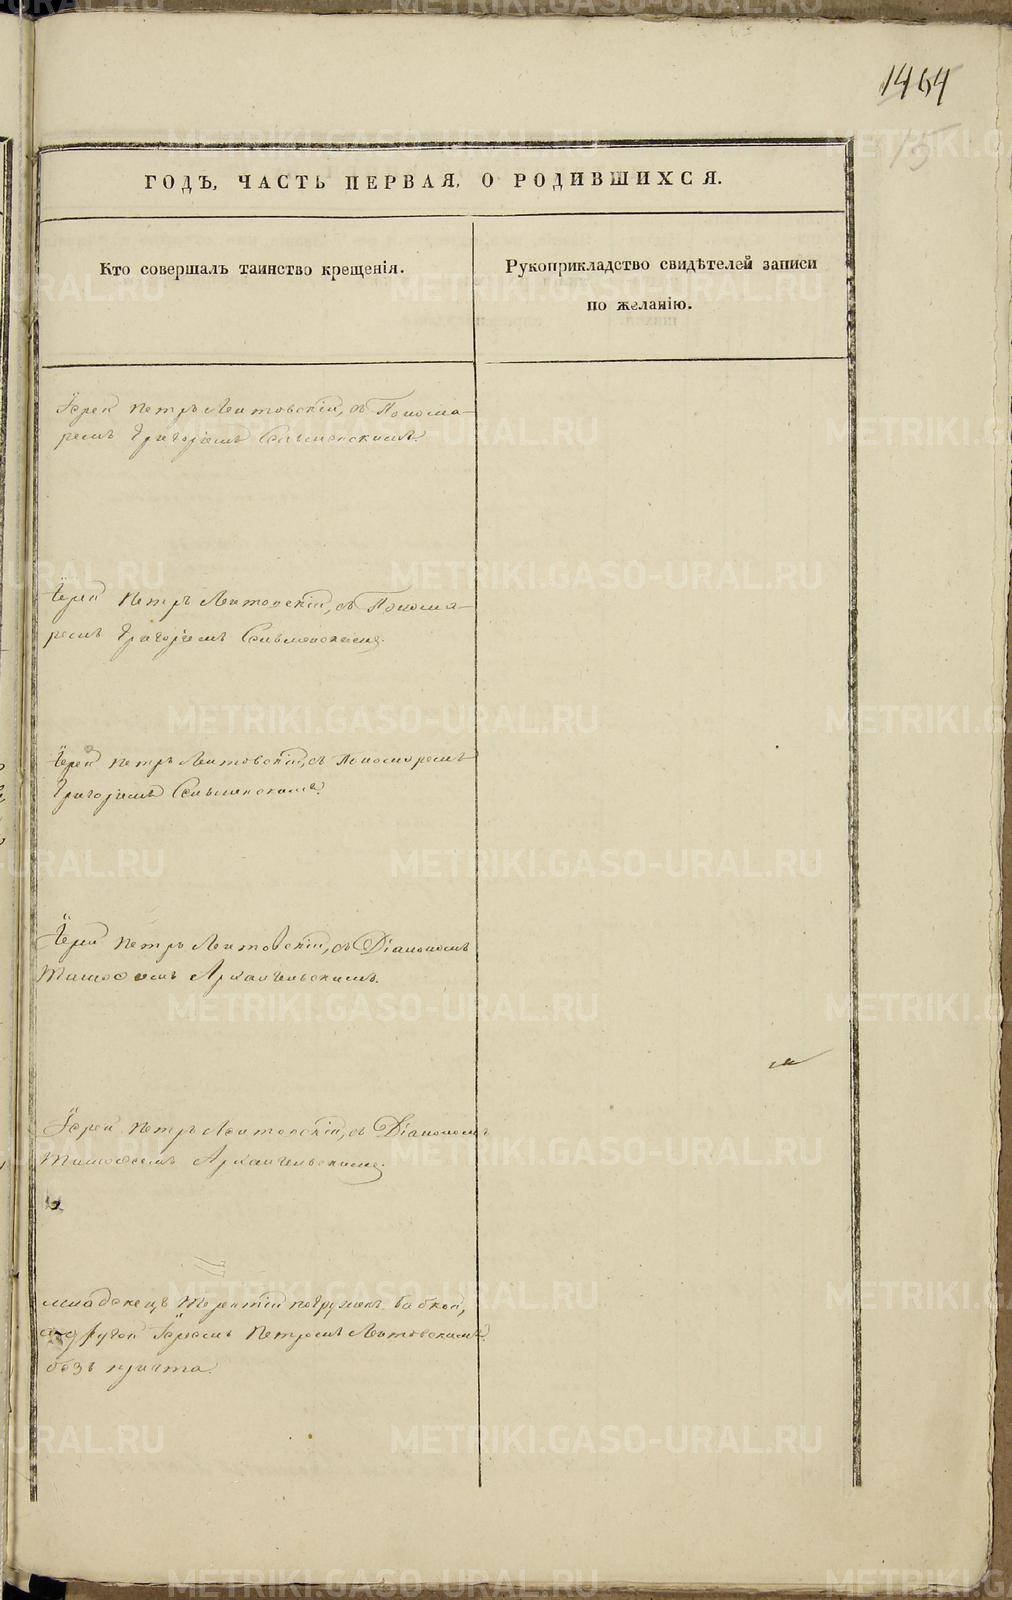 1464
15
ГОДЪ, ЧАСТЬ ПЕРВАЯ, О РОДИВШИХСЯ.
Кто совершалъ таинство крещенія.
Рукоприкладство свидѣтелей записи
по желанію.
Іерей Петръ Литовскій, съ Понома-
ремъ Григоріемъ
Іерей Петръ Литовскій, съ Понома-
ремъ Григоріемъ
Іерей Петръ Литовскій, съ Пономаремъ
Григоріемъ
Іерей Петръ Литовскій, съ Діакономъ
Архангельскимъ.
Іерей Петръ Литовскій, съ Діакономъ
Архангельскимъ.
младенецъ Терентій погруженъ бабкой,
Іереемъ Петромъ Литовскимъ
безъ причта.
METRIKI.GASO-URAL.RU